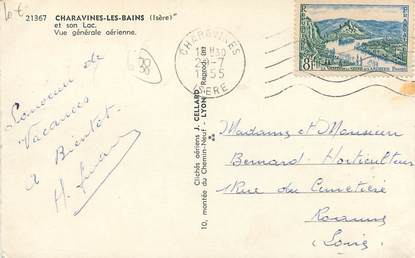 21367 CHARAVINES-LES-BAINS (Isère)
et son Lac.
Vue générale aérienne.
CHARAVINES
1955
ISERE
8F
Clichés aériens J. CELLARD
Reprod. int.
10, montée du Chemin-Neuf - LYON
de
Vacances
à Bientôt
Madame et Monsieur
Bernard-Horticulteur
1 Rue du Cimetière
Roanne
(Loire)